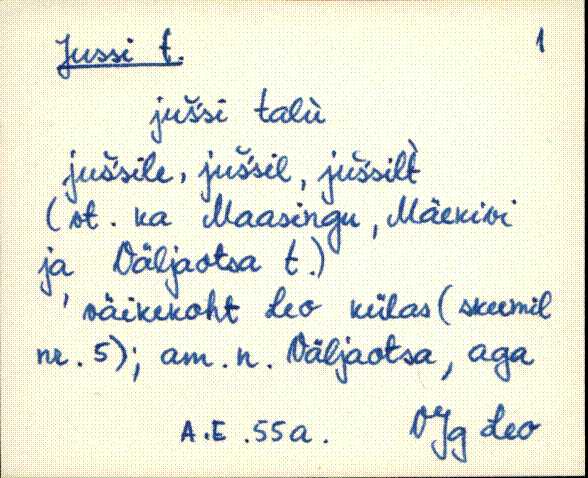 Jussi t. 1
juśsi talù
juśsile, juśsil, juśsilt̀
(st. ka Maasingu, Mäekivi
ja Väljaotsa t.)
väikekoht Leo külas (skeemil
nr. 5); am. n. Väljaotsa, aga
A.E. 55a. VJg Leo